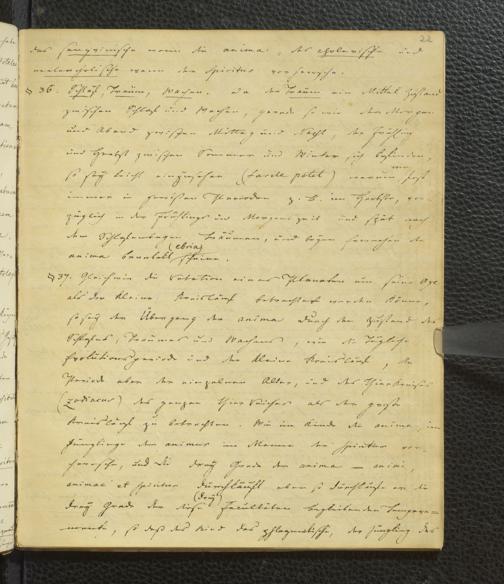 22
das sanguinische wenn die anima, das cholerische und
melancholische wenn der Spiritus vorherrsche.
§ 36. Schlaf, Traum, Wachen. Da der Traum ein Mittel Zustand
zwischen Schlaf und Wachen, gerade so wie der Morgen
und Abend zwischen Mittag und Nacht, der Frühling
und Herbst zwischen Sommer und Winter sich befinden,
so sey leicht einzusehen (facile patet) warum wir fast
immer in gewissen Perioden z. B. im Herbste, vor-
züglich in der Frühlings und Morgenzeit und spät nach
dem träumen, und wegen die
anima (ebria) scheine.
§ 37. Gleichwie die Rotation eines Planeten um seine Axe
als der kleine Kreislauf betrachtet werden könne,
so sey der Übergang der anima durch den Zustand des
Schlafes, Traumes und Wachens, wie die tägliche
Evolutionsperiode und der kleine Kreislauf, die
Periode aber der einzelnen Alter, und des Thierkreises
(zodiacus) des ganzen Thier Reiches als der große
Kreislauf zu betrachten. Wie im Kinde die anima, im
Jünglinge der animus im Manne der Spiritus vor-
herrsche, und die drey Grade der anima — animi,
animae et Spiritus durchläuft eben so durchlaufe er die
drey Grade der diesen (drey) Facultäten begleitenden Tempera-
mente, so daß das Kind das phlegmatische, der Jüngling das